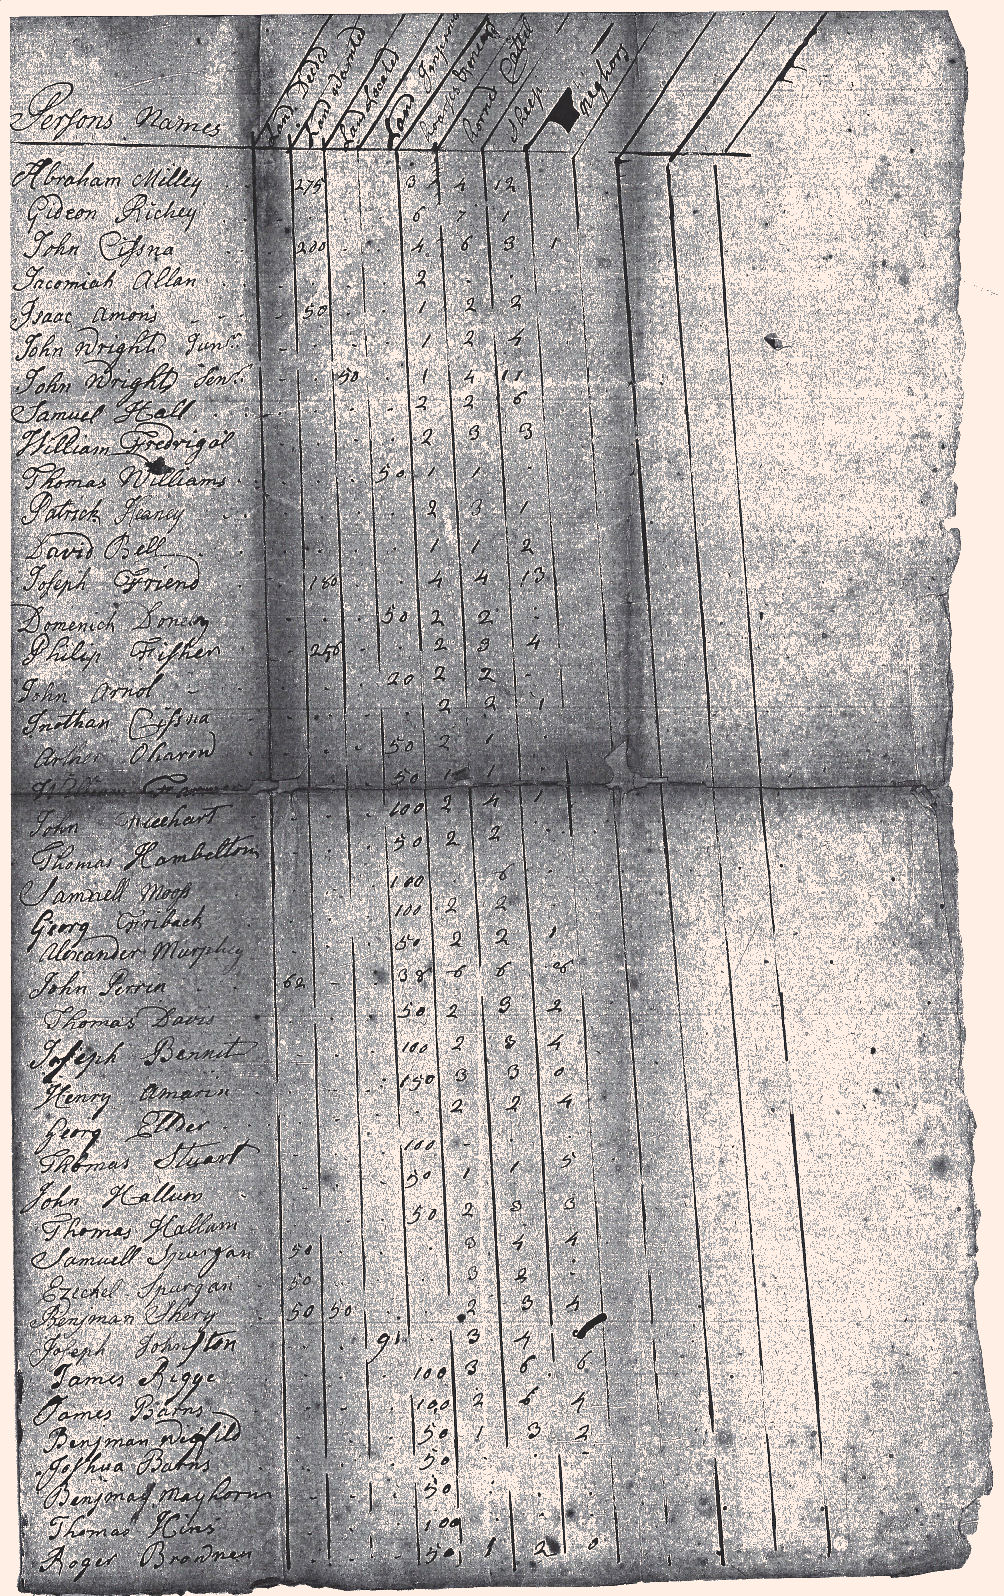 Persons Names Land Deeded Land Warnted Land Located Land Horses Horned Cattle Sheep Nighors
Abraham Milley 275 3 4 12
Gideon Richey 6 7 1
John Cissna 200 4 6 3 1
Jacomiah Allan 2
Isaac Amons 50 1 2 2
John Wright Junr 1 2 4
John Wright Senr 50 1 4 11
Samuel Hall 2 2 6
William Fredrigal 2 3 3
Thomas Williams 50 1 1
Patrick Heaney 2 3 1
David Bell 1 1 2
Joseph Friend 150 4 4 13
Domenich 50 2 2
Philip Fisher 256 2 3 4
John Arnol 20 2 2
Jnothan Cissna 2 2 1
Arther Oharend 50 2 1
William 50 1 1
John 100 2 4 1
Thomas Hambeltom 50 2 2
Samuell Moss 100 6
Georg 100 2 2
Alexander Murphey 50 2 2 1
John Perrin 62 38 6 6
Thomas Davis 50 2 3 2
Joseph Bennit 100 2 3 4
Henry Amarin 150 3 3 0
Georg Elder 2 2 4
Thomas Stuart 100
John Hallum 50 1 1 5
Thomas Hallum 50 2 3 3
Samuell Spurgan 50 3 4 4
Ezichel Spurgan 50 3 2
Benjman Shery 50 50 2 3 4
Joseph Johnston 91 3 4
James Rigge 100 3 6 6
James Barns 100 2 6 4
Benjman 50 1 3 2
Joshua Barns 50
Benjman Mayhorn 50
Thomas Hins 100
Roger Brownen 50 1 2 0